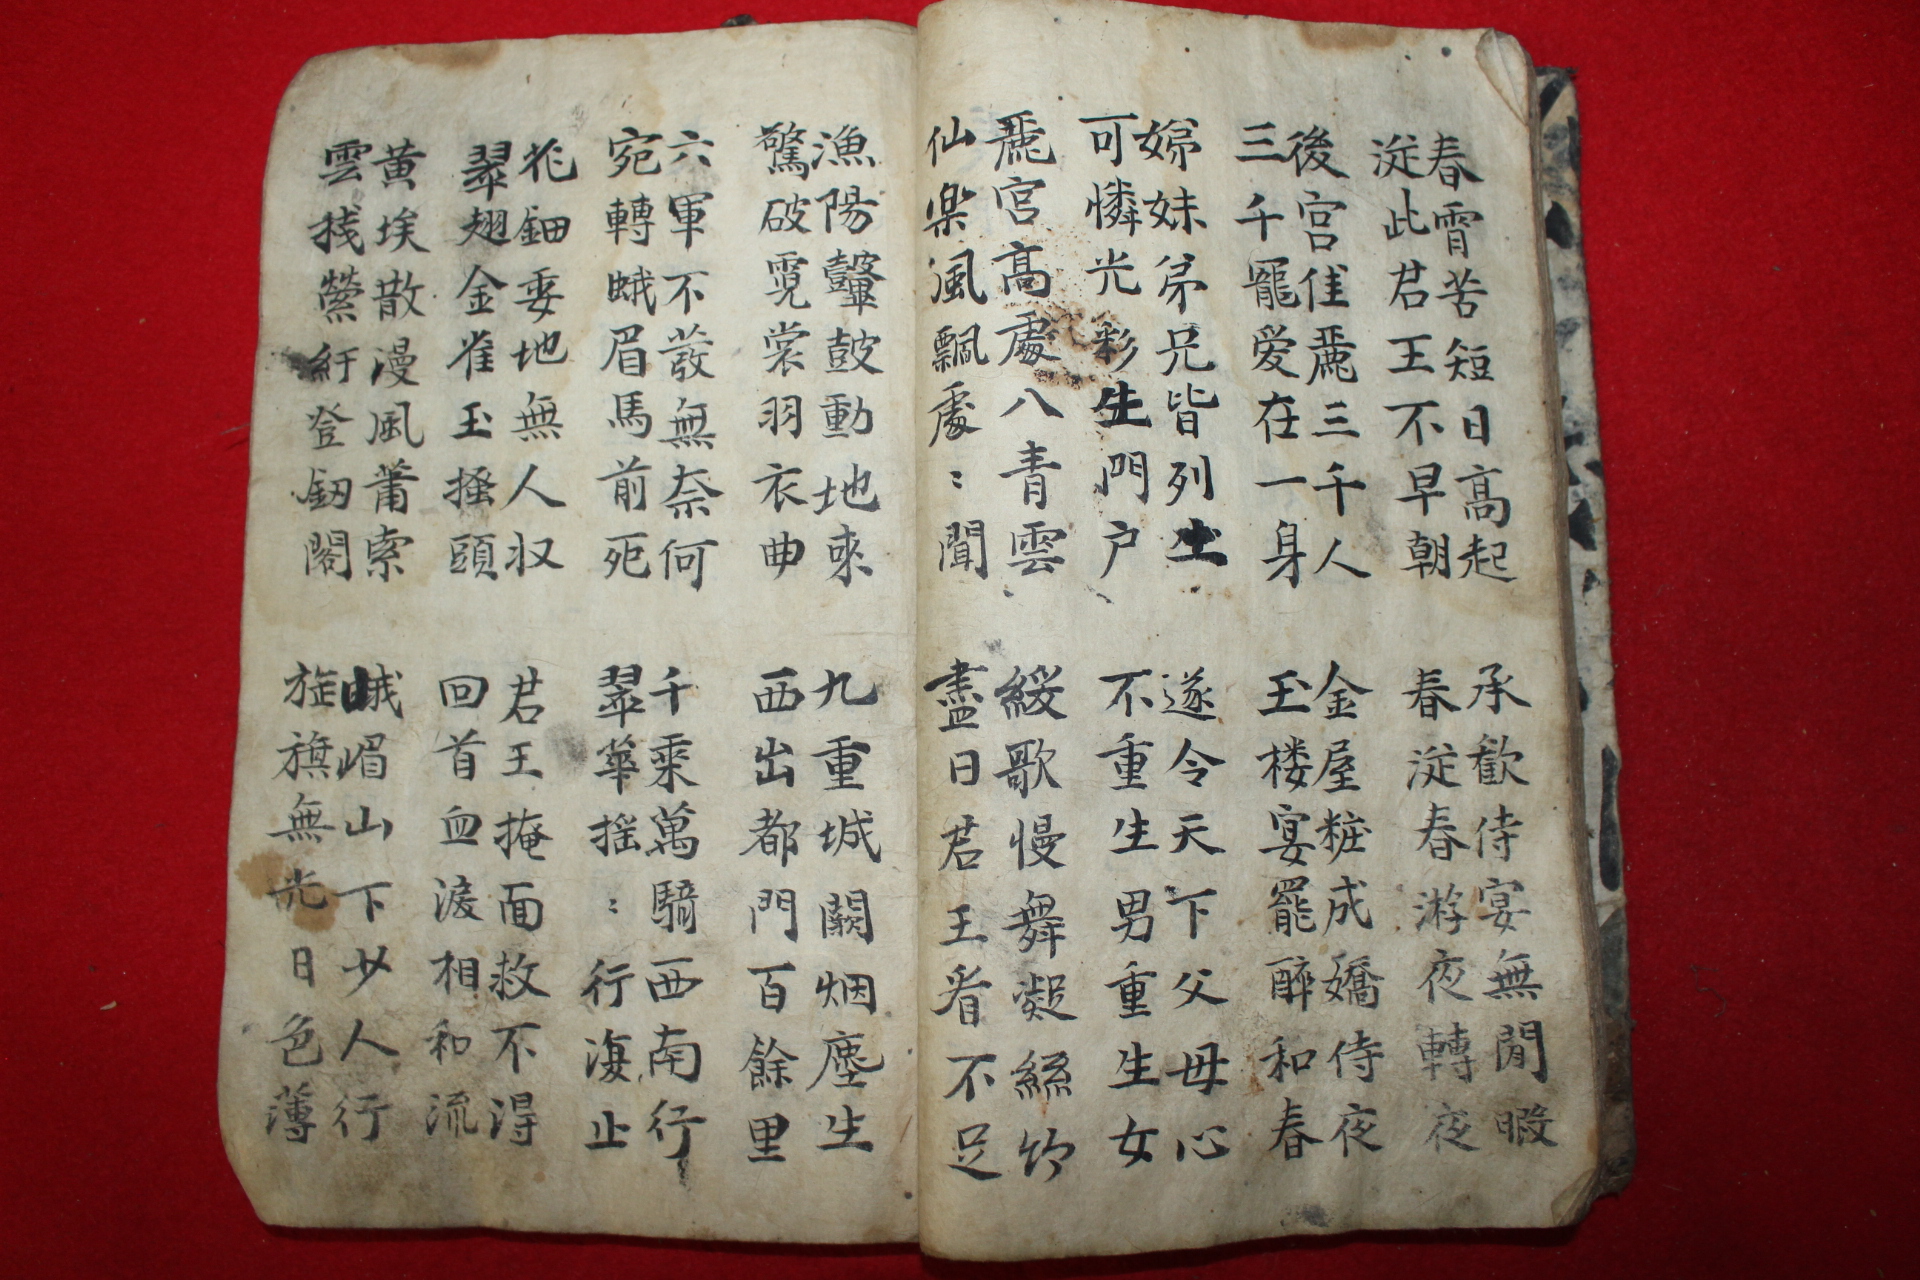 春霄苦短日高起
從此君王不早朝
承歡侍宴無閒暇
春從春游夜轉夜
後宮佳麗三千人
三千罷愛在一身
金屋粧成嬌侍夜
玉楼宴罷醉和春
娣妹弟兄皆列土
可憐光彩生門户
遂令天下父母心
不重生男重生女
麗宮高處八青雲
仙楽風飄處〻聞
緩歌慢舞凝絲竹
盡日君王看不足
漁陽鼙鼓動地來
驚破霓裳羽衣曲
九重城闕烟塵生
西出都門百餘里
六軍不發無奈何
宛轉蛾眉馬前死
千乘萬騎西南行
翠華揺〻行復止
花鈿委地無人収
翠翅金雀玉搔頭
君王掩面救不得
回首血淚相和流
黄埃散漫風蕭索
雲栈縈紆登釼閣
峨嵋山下少人行
旌旗無光日色薄